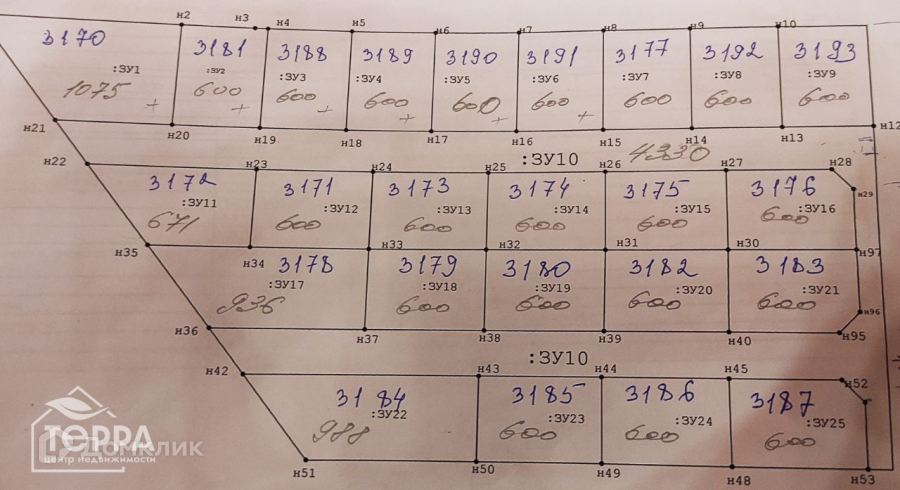 н2 н3 н4 н5 н6 н7 н8 н9 н10
3170 3181 3188 3189 3190 3191 3177 3192 3193
:ЗУ1 :ЗУ2 :ЗУ3 :ЗУ4 :ЗУ5 :ЗУ6 :ЗУ7 :ЗУ8 :ЗУ9
1075 600 600 600 600 600 600 600 600
+ + + + + +
н21 н20 н19 н18 н17 н16 н15 н14 н13 н12
:ЗУ10 4330
н22 н23 н24 н25 н26 н27 н28
н29
3172 3171 3173 3174 3175 3176
:ЗУ11 :ЗУ12 :ЗУ13 :ЗУ14 :ЗУ15 :ЗУ16
671 600 600 600 600 600
н35 н34 н33 н32 н31 н30 н97
3178 3179 3180 3182 3183
:ЗУ17 :ЗУ18 :ЗУ19 :ЗУ20 :ЗУ21
936 600 600 600 600
н96
н36 н37 н38 н39 н40 н95
:ЗУ10
н42 н43 н44 н45 н52
3184 3185 3186 3187
:ЗУ22 :ЗУ23 :ЗУ24 :ЗУ25
988 600 600 600
н51 н50 н49 н48 н53
ТОРРА
Домклик
центр недвижимости